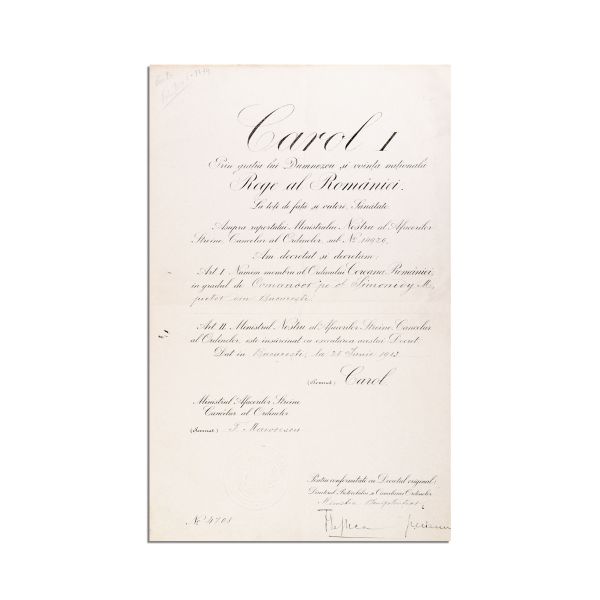 Carol I
Prin grația lui Dumnezeu și voința națională
Rege al României.
La toți de față și viitori, Sănătate.
Asupra raportului Ministrului Nostru al Afacerilor
Streine, Cancelar al Ordinelor, sub No 14926,
Am decretat și decretăm:
Art. I. Numim membru al Ordinului Coroana României,
în gradul de Comandor pe d. Simonidy M.
pictor din București.
Art. II. Ministrul Nostru al Afacerilor Streine, Cancelar
al Ordinelor, este însărcinat cu executarea acestui Decret.
Dat în București, la 28 Iunie 1913
(Semnat) Carol.
Ministrul Afacerilor Streine
Cancelar al Ordinelor
(Semnat) T. Maiorescu
Pentru conformitate cu Decretul original:
Directorul Protocolului și Cancelariei Ordinelor,
Ministru Plenipotențiar
No 4701